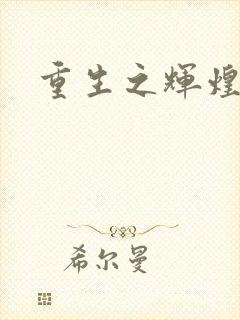 重生之辉煌
希尔曼